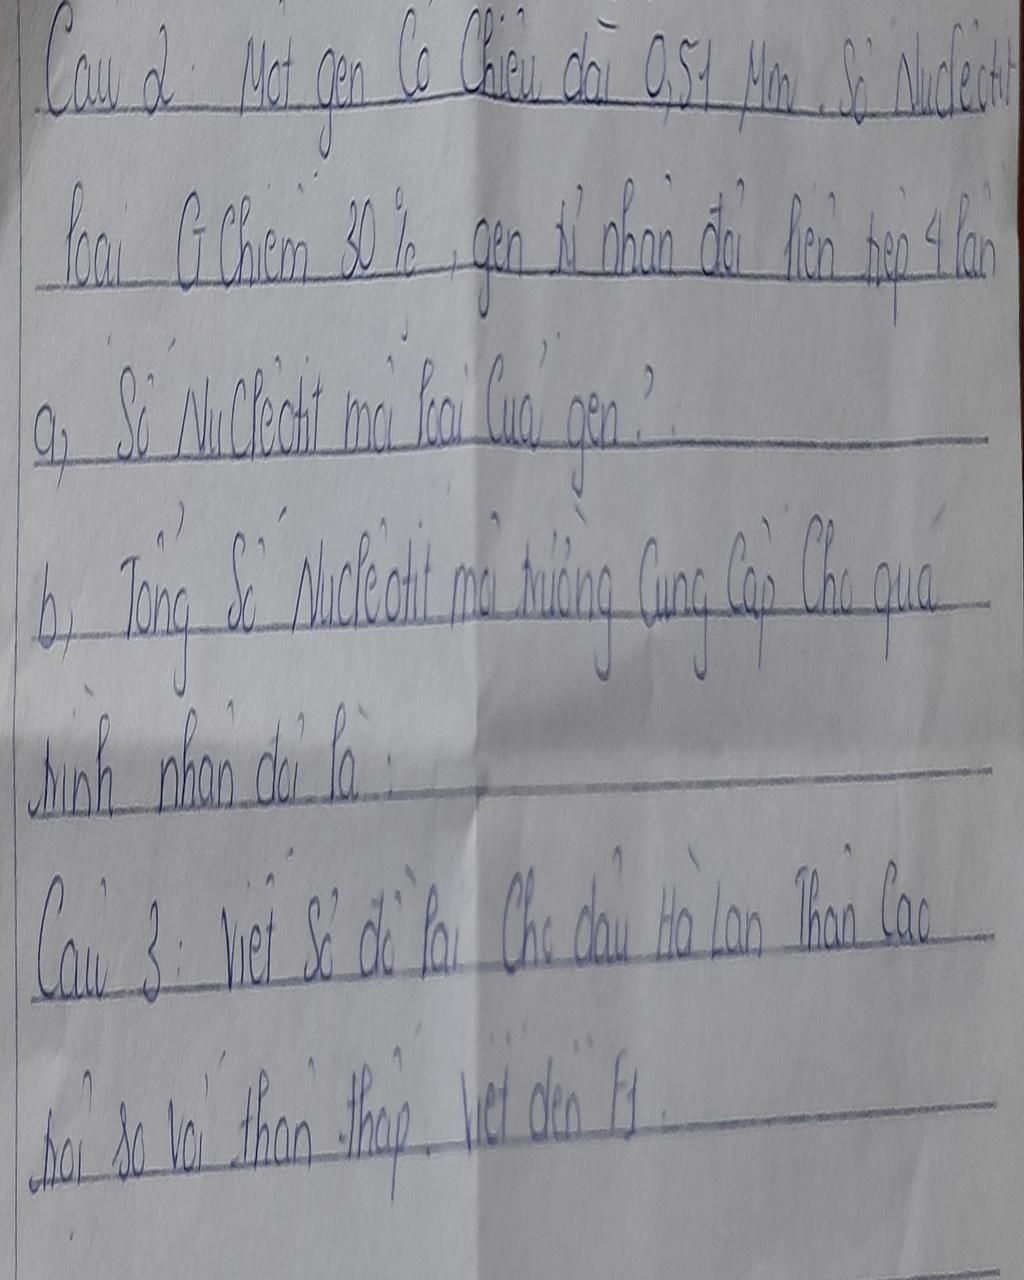 Câu 2: Một gen Có Chiều dài 0,51 µm. Số Nuclêôtit
loại G Chiếm 30%, gen tự nhân đôi liên tiếp 4 lần
a, Số Nuclêôtit mỗi loại Của gen?
b, Tổng Số Nuclêôtit môi trường Cung Cấp Cho quá
trình nhân đôi là:
Câu 3: Viết Sơ đồ lai Cho đậu Hà Lan Thân Cao
trội so với thân thấp. Viết đến F1.